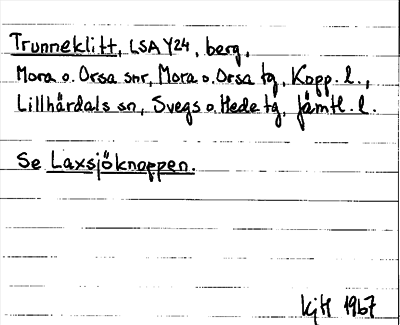 Trunneklitt, LSA Y24, berg,
Mora o. Orsa snr, Mora o. Orsa tg, Kopp. l.,
Lillhärdals sn, Svegs o. Hede tg, Jämtl. l.
Se Laxsjöknoppen.
KjH 1967